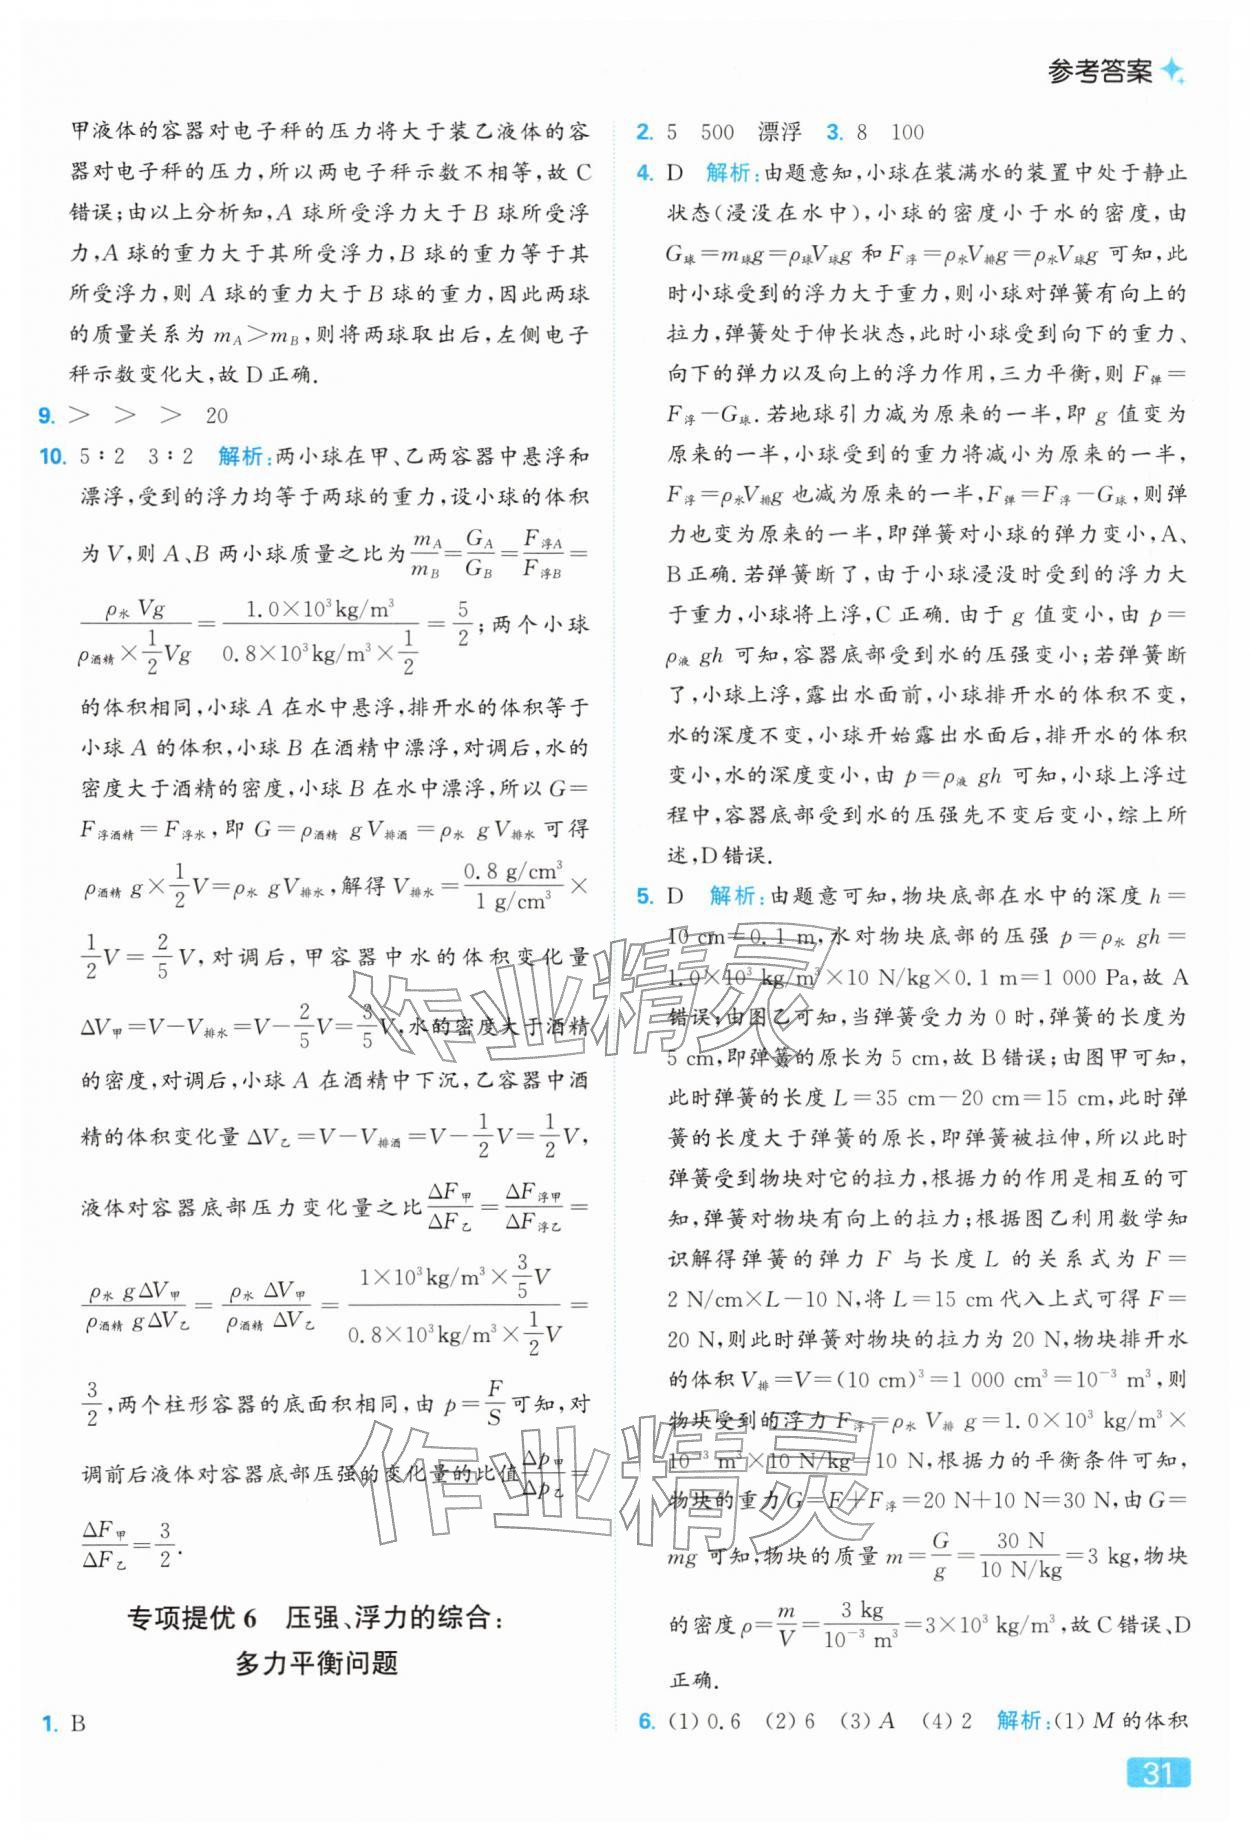 参考答案
甲液体的容器对电子秤的压力将大于装乙液体的容
器对电子秤的压力,所以两电子秤示数不相等,故 C
错误;由以上分析知,A 球所受浮力大于 B 球所受浮
力,A 球的重力大于其所受浮力,B 球的重力等于其
所受浮力,则 A 球的重力大于 B 球的重力,因此两球
的质量关系为 m_A>m_B,则将两球取出后,左侧电子
秤示数变化大,故 D 正确.
9. > > > 20
10. 5∶2 3∶2 解析:两小球在甲、乙两容器中悬浮和
漂浮,受到的浮力均等于两球的重力,设小球的体积
为 V,则 A、B 两小球质量之比为 m_A/m_B=G_A/G_B=F_浮A/F_浮B=
ρ_水 Vg/(ρ_酒精×1/2 Vg)=1.0×10³ kg/m³/(0.8×10³ kg/m³×1/2)=5/2;两个小球
的体积相同,小球 A 在水中悬浮,排开水的体积等于
小球 A 的体积,小球 B 在酒精中漂浮,对调后,水的
密度大于酒精的密度,小球 B 在水中漂浮,所以 G=
F_浮酒精=F_浮水,即 G=ρ_酒精 gV_排酒=ρ_水 gV_排水可得
ρ_酒精 g×1/2 V=ρ_水 gV_排水,解得 V_排水=0.8 g/cm³/1 g/cm³×
1/2 V=2/5 V,对调后,甲容器中水的体积变化量
ΔV_甲=V-V_排水=V-2/5 V=3/5 V,水的密度大于酒精
的密度,对调后,小球 A 在酒精中下沉,乙容器中酒
精的体积变化量 ΔV_乙=V-V_排酒=V-1/2 V=1/2 V,
液体对容器底部压力变化量之比 ΔF_甲/ΔF_乙=ΔF_浮甲/ΔF_浮乙=
ρ_水 gΔV_甲/ρ_酒精 gΔV_乙=ρ_水 ΔV_甲/ρ_酒精 ΔV_乙=(1×10³ kg/m³×3/5 V)/(0.8×10³ kg/m³×1/2 V)=
3/2,两个柱形容器的底面积相同,由 p=F/S 可知,对
调前后液体对容器底部压强的变化量的比值 Δp_甲/Δp_乙=
ΔF_甲/ΔF_乙=3/2.
专项提优 6 压强、浮力的综合:
多力平衡问题
1. B
2. 5 500 漂浮 3. 8 100
4. D 解析:由题意知,小球在装满水的装置中处于静止
状态(浸没在水中),小球的密度小于水的密度,由
G_球=m_球g=ρ_球V_球g 和 F_浮=ρ_水V_排g=ρ_水V_球g 可知,此
时小球受到的浮力大于重力,则小球对弹簧有向上的
拉力,弹簧处于伸长状态,此时小球受到向下的重力、
向下的弹力以及向上的浮力作用,三力平衡,则 F_弹=
F_浮-G_球.若地球引力减为原来的一半,即 g 值变为
原来的一半,小球受到的重力将减小为原来的一半,
F_浮=ρ_水V_排g 也减为原来的一半,F_弹=F_浮-G_球,则弹
力也变为原来的一半,即弹簧对小球的弹力变小,A、
B正确.若弹簧断了,由于小球浸没时受到的浮力大
于重力,小球将上浮,C 正确.由于 g 值变小,由 p=
ρ_液 gh 可知,容器底部受到水的压强变小;若弹簧断
了,小球上浮,露出水面前,小球排开水的体积不变,
水的深度不变,小球开始露出水面后,排开水的体积
变小,水的深度变小,由 p=ρ_液 gh 可知,小球上浮过
程中,容器底部受到水的压强先不变后变小,综上所
述,D错误.
5. D 解析:由题意可知,物块底部在水中的深度 h=
10 cm=0.1 m,水对物块底部的压强 p=ρ_水 gh=
1.0×10³ kg/m³×10 N/kg×0.1 m=1 000 Pa,故 A
错误;由图乙可知,当弹簧受力为 0 时,弹簧的长度为
5 cm,即弹簧的原长为 5 cm,故 B 错误;由图甲可知,
此时弹簧的长度 L=35 cm-20 cm=15 cm,此时弹
簧的长度大于弹簧的原长,即弹簧被拉伸,所以此时
弹簧受到物块对它的拉力,根据力的作用是相互的可
知,弹簧对物块有向上的拉力;根据图乙利用数学知
识解得弹簧的弹力 F 与长度 L 的关系式为 F=
2 N/cm×L-10 N,将 L=15 cm代入上式可得 F=
20 N,则此时弹簧对物块的拉力为 20 N,物块排开水
的体积 V_排=V=(10 cm)³=1 000 cm³=10⁻³ m³,则
物块受到的浮力 F_浮=ρ_水 V_排 g=1.0×10³ kg/m³×
10⁻³ m³×10 N/kg=10 N,根据力的平衡条件可知,
物块的重力 G=F+F_浮=20 N+10 N=30 N,由 G=
mg 可知,物块的质量 m=G/g=30 N/10 N/kg=3 kg,物块
的密度 ρ=m/V=3 kg/10⁻³ m³=3×10³ kg/m³,故 C 错误、D
正确.
6. (1) 0.6 (2) 6 (3) A (4) 2 解析:(1) M 的体积
31
作业精灵
作业精灵